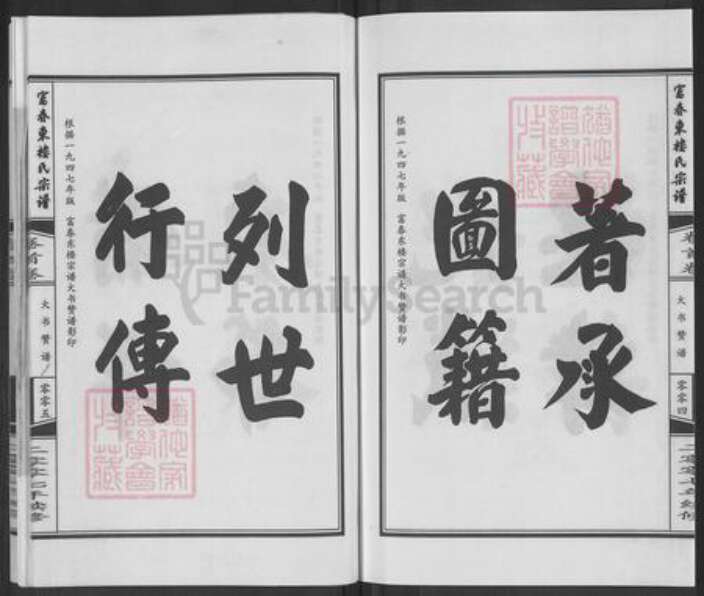 富春東樓氏宗譜
大书赞谱
零零四
著承
圖籍
根据一九四七年版 富春东楼宗谱大书赞谱影印
列世
行傳
根据一九四七年版 富春东楼宗谱大书赞谱影印
富春東樓氏宗譜
卷首卷
大书赞谱
零零五
FamilySearch